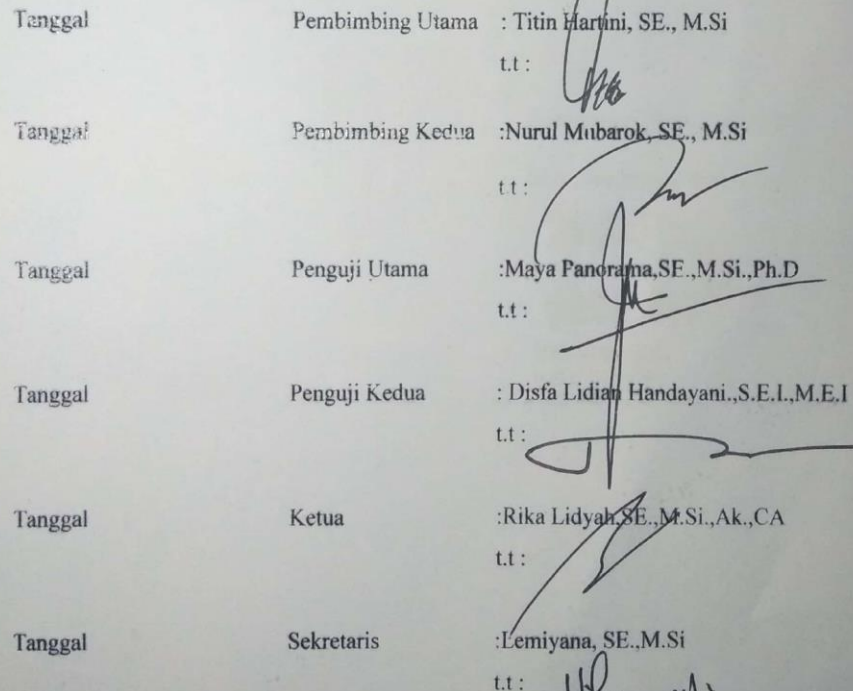 Tanggal Pembimbing Utama : Titin Hartini, SE., M.Si
t.t :
Tanggal Pembimbing Kedua :Nurul Mubarok, SE., M.Si
t.t :
Tanggal Penguji Utama :Maya Panorama,SE.,M.Si.,Ph.D
t.t :
Tanggal Penguji Kedua : Disfa Lidian Handayani.,S.E.I.,M.E.I
t.t :
Tanggal Ketua :Rika Lidyah,SE.,M.Si.,Ak.,CA
t.t :
Tanggal Sekretaris :Lemiyana, SE.,M.Si
t.t :